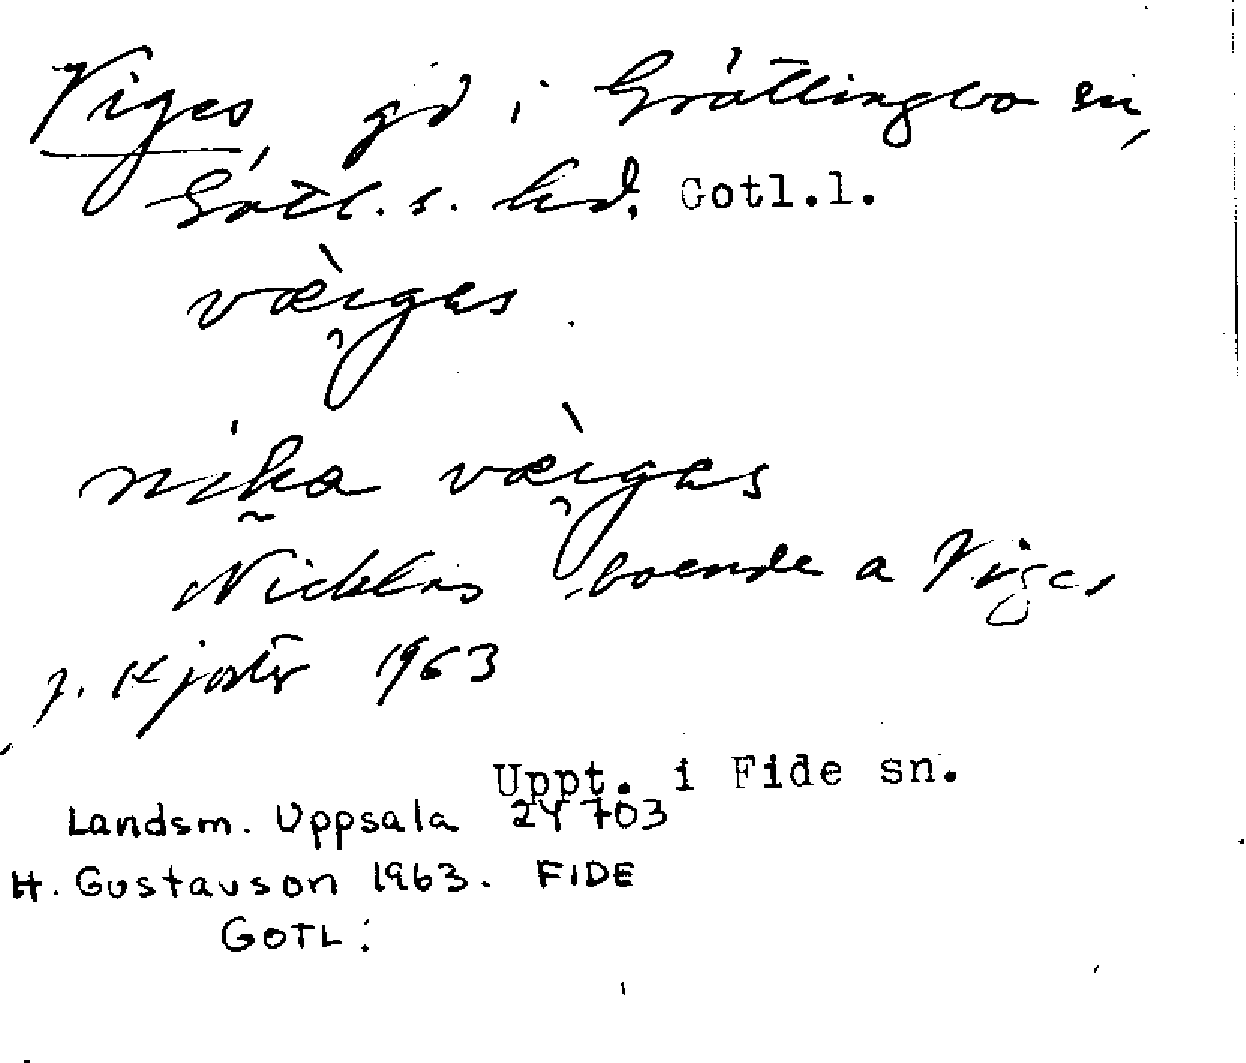 Viges, gd i Grötlingbo sn,
Gotl. s. hd. Gotl.l.
væi̯gas
nika væi̯gas
Nicklas boende a Viges
1963
Uppt. i Fide sn.
Landsm. Uppsala 24703
H. Gustavson 1963. FIDE
GOTL: